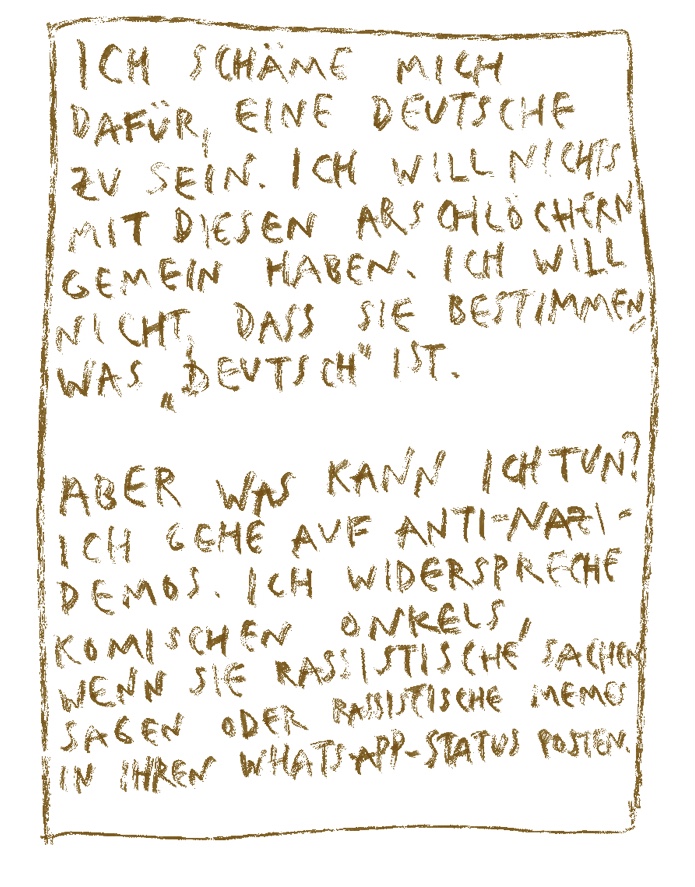 ICH SCHÄME MICH
DAFÜR, EINE DEUTSCHE
ZU SEIN. ICH WILL NICHTS
MIT DIESEN ARSCHLÖCHERN
GEMEIN HABEN. ICH WILL
NICHT, DASS SIE BESTIMMEN,
WAS „DEUTSCH“ IST.
ABER WAS KANN ICH TUN?
ICH GEHE AUF ANTI-NAZI-
DEMOS. ICH WIDERSPRECHE
KOMISCHEN ONKELS,
WENN SIE RASSISTISCHE SACHEN
SAGEN ODER RASSISTISCHE MEMES
IN IHREN WHATSAPP-STATUS POSTEN.